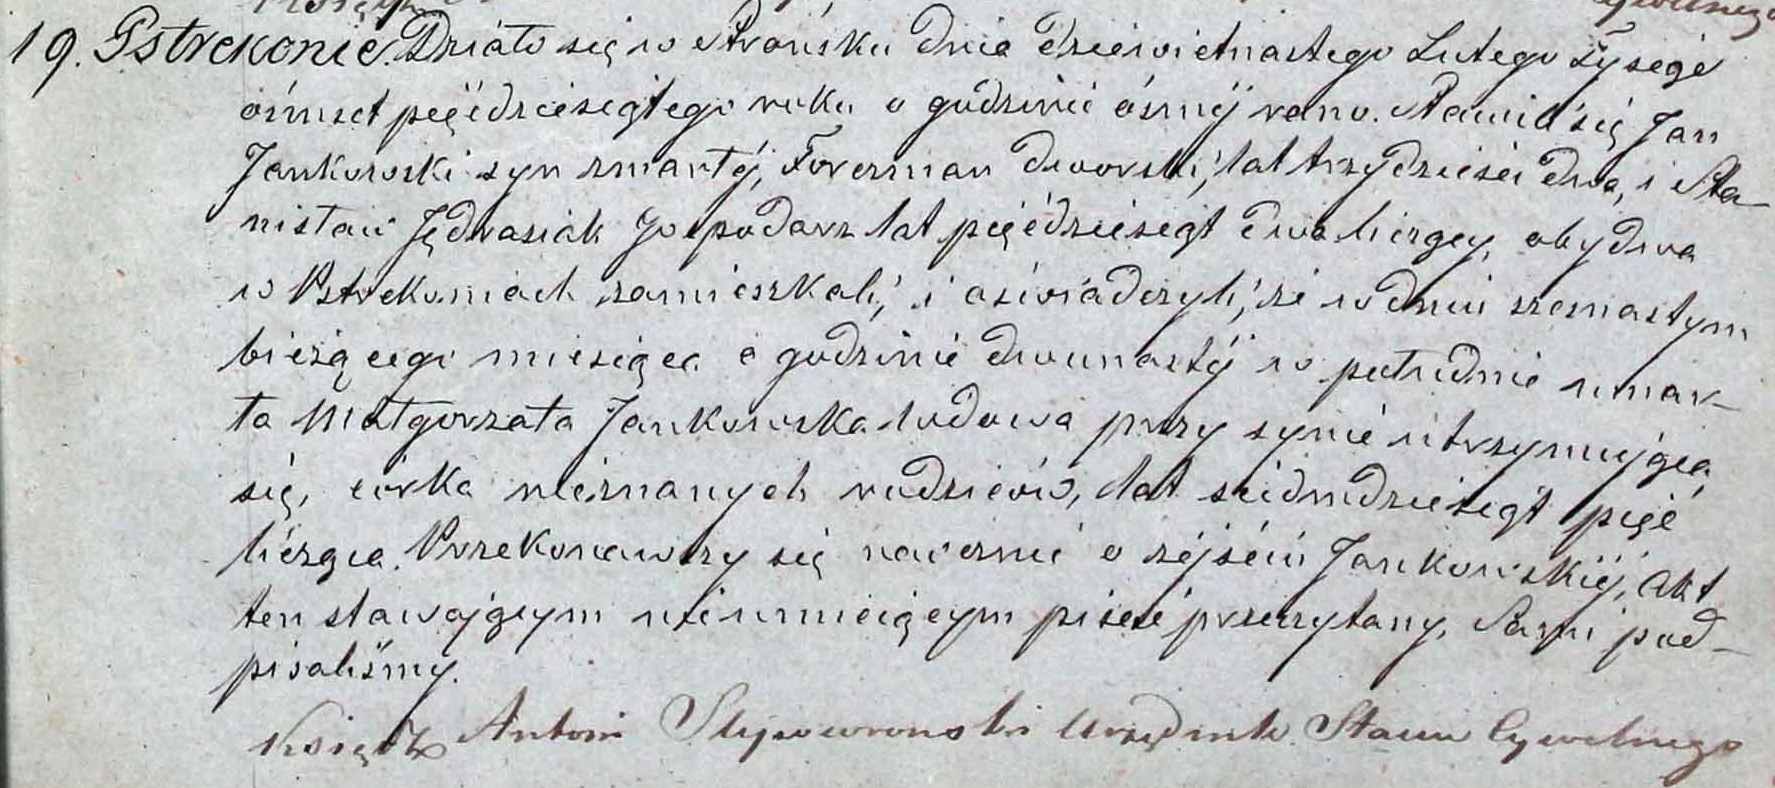 19. Pstrekonie. Działo się w Strońsku dnia dziewietnastego Lutego tysąc
ośmset pięćdziesiątego roku o godzinie ósmej rano. Stawili się Jan
Jankowski syn zmarłéj, Forszman dworski, lat trzydzieści dwa, i Sta-
nisław Jędrasiak gospodarz lat pięćdziesiąt dwa liczący, obydwa
w Pstrekoniach zamieszkali, i oświadczyli, że w dniu szesnastym
bieżącego miesiąca o godzinie dwunastéj w południe umar-
ła Małgorzata Jankowska wdowa przy synie utrzymująca
się, córka nieznanych rodziców, lat siedmdziesiąt pięć
licząca. Przekonawszy się naocznie o zéjściu Jankowskiéj, akt
ten stawającym nieumiejącym pisać przeczytany. Sami pod-
pisaliśmy.
Ksiądz Antoni Slepowronski Urzędnik Stanu Cywilnego